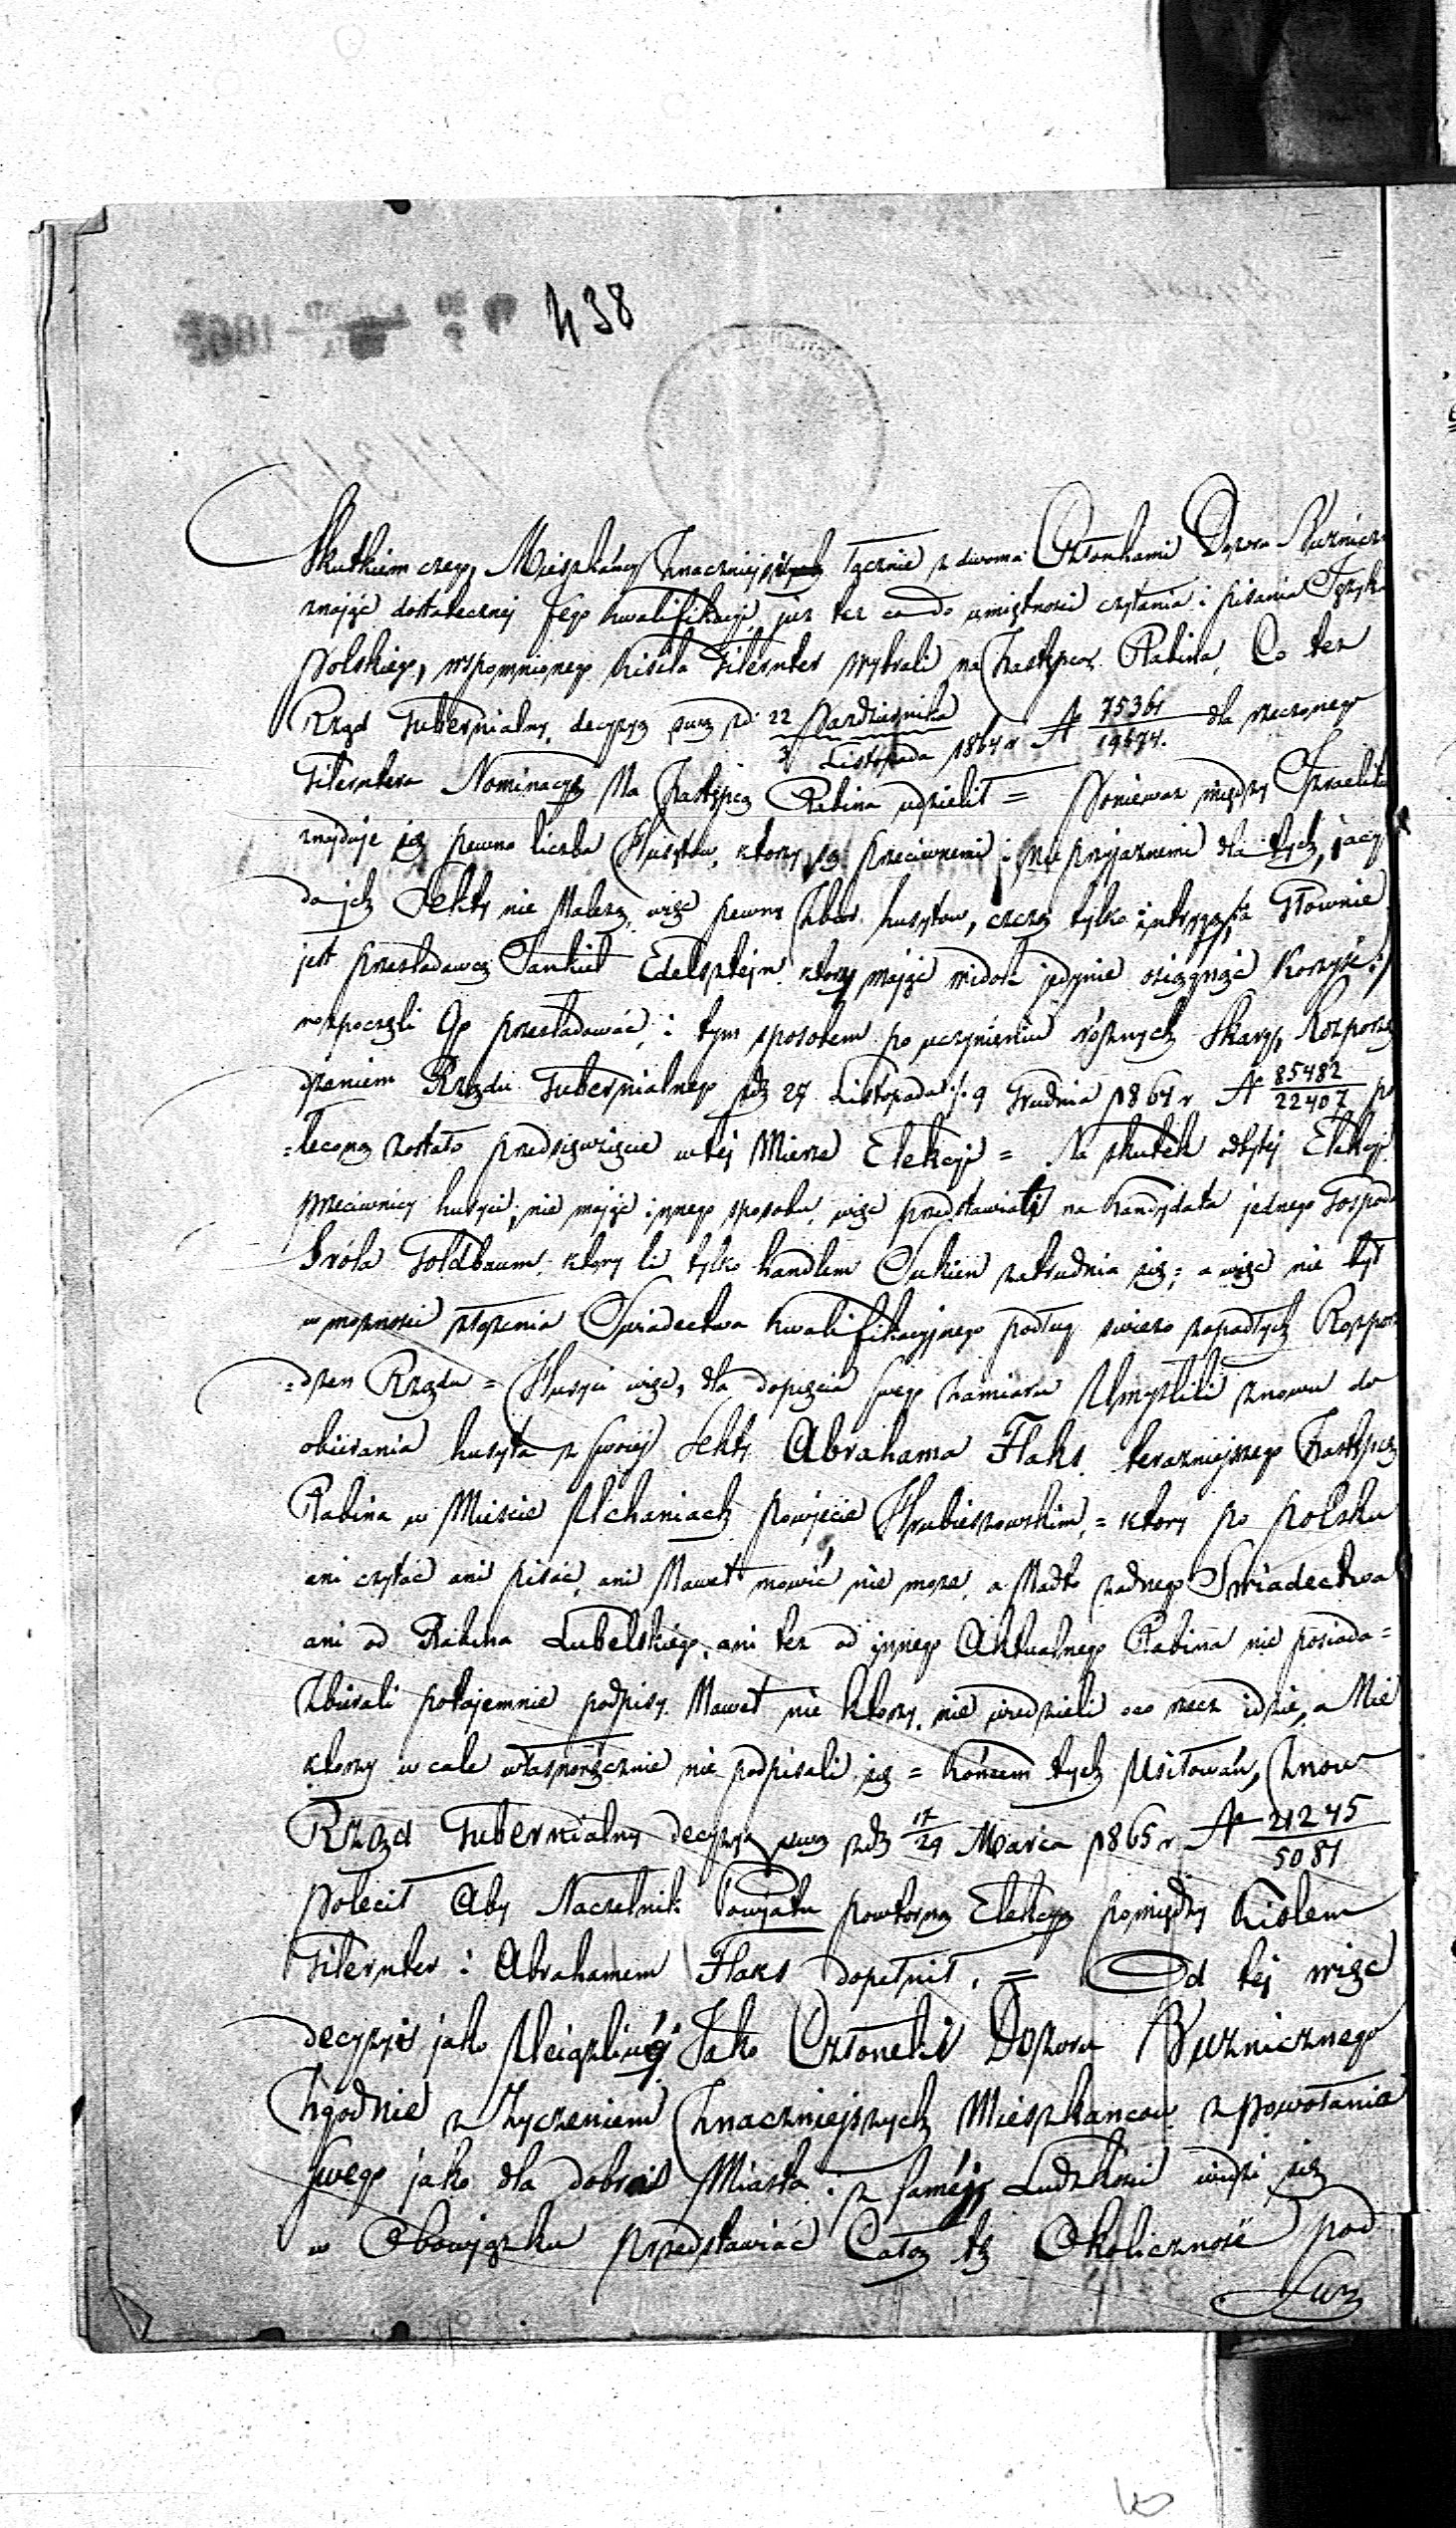 438
Skutkiem czego, Mieszkańcy Znaczniejsi łącznie z dwoma Członkami Dozoru Bużnicz
znając dostatecznej Jego kwalifikacji już też co do umiętności czytania i pisania Języka
Polskiego, wspomnionego Kisiela Filernter wybrali na Zastępcę Rabina, Co też
Rząd Gubernialny, decyzyą swą zd. 22 Pazdziernika / 3 Listopada 1864 r № 75361 / 19674. dla rzeczonego
Filerntera Nominacyę Na Zastępcę Rabina udzielił = Poniewaz między Izraelita
znajduje się pewna liczba Husytów, ktorzy są przeciwnemi i nie przyjaznemi dla tych, jacy
do ich Sekty nie Należą, więc pewny Zbior husytow, czczą tylko intrygą, Głownie
jest prześladowcą Jankiel Edelsztejn ktory mając widok jedynie osiągnąć Korzyść :/
rozpoczęli Go prześladować, i tym sposobem po uczynieniu rożnych Skarg, Rozporzą
dzeniem Rządu Gubernialnego zd. 27 Listopada /. 9 Grudnia 1864 r № 85482 / 22407 po
=lecono zostało przedsięwzięcie w tej Mierze Elekcyi = Na skutek odbytej Elekcyi
przeciwnicy husyci, nie mając innego sposobu, więc przedstawiali na kandydata jednego Gospoda
Sróla Goldbaum, ktory li tylko handlem Sukien zatrudnia się; a więc nie był
w możnosci złożenia Swiadectwa kwalifikacyjnego podług swieżo zapadłych Rozporzą
=dzen Rządu = Husyci więc, dla dopięcia swego Zamiaru Umyslili znowu do
obierania husyta z swojej Sekty Abrahama Flaks teraźniejszego Zastępcę
Rabina w Miescie Uchaniach Powiecie Hrubieszowskim, = ktory po polsku
ani czytać ani pisać, ani Nawet mowić nie może, a Nadto żadnego Swiadectwa
ani od Rabina Lubelskiego, ani też od innego Aktualnego Rabina nie posiada =
Zbierali potajemnie podpisy Nawet nie ktorzy, nie wiedzieli oco rzecz idzie, a Nie
ktorzy w cale własnoręcznie nie podpisali się = końcem tych Usiłowań, Znow
Rząd Gubernialny decyzyą swą zd. 17/29 Marca 1865 r № 21245 / 5081
Polecił Aby Naczelnik Powiatu powtorną Elekcyę pomiędzy Kislem
Filernter i Abrahamem Flaks dopełnił. = Od tej więc
decyzyi jako Uciążliwej Jako Członek Dozoru Bużnicznego
Zgodnie z Życzeniem Znaczniejszych Mieszkancow z powołania
swego jako dla dobra Miasta i z samej Ludzkości widzi się
w Obowiązku przedstawiać Całą tę Okoliczność pod
Swą